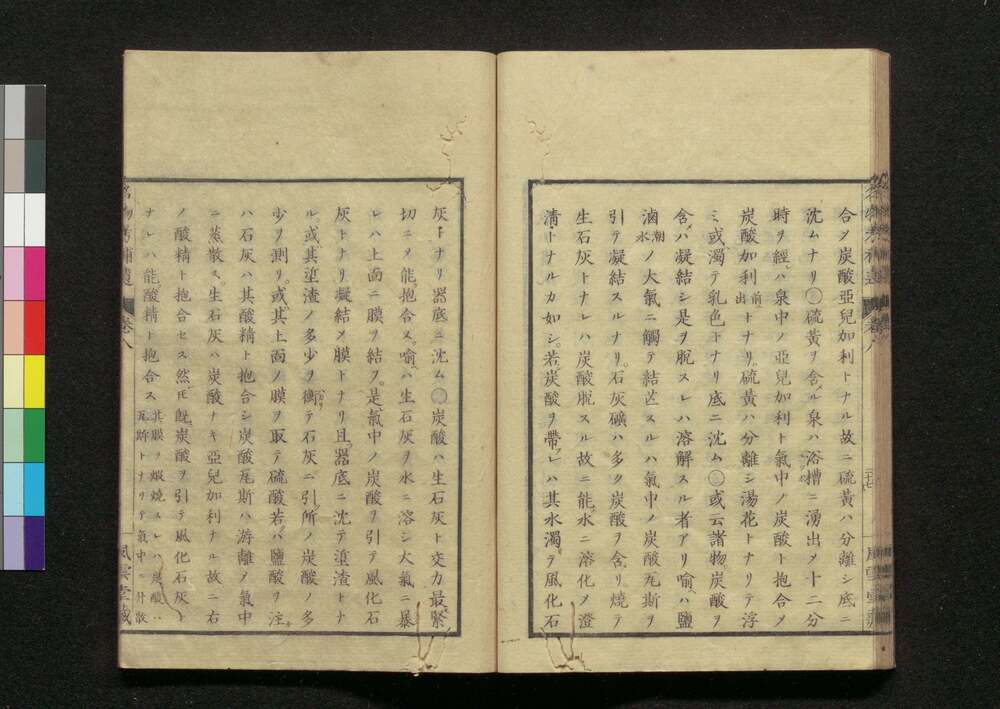 合タ炭酸亞兒加利トナル故ニ硫黃ハ分離シ底ニ
沈ムナリ○硫黃ヲ含ル泉ハ浴槽ニ湧出メ十二分
時ヲ經ハ泉中ノ亞兒加利ト氣中ノ炭酸ト抱合メ
炭酸加利前出トナリ硫黃ハ分離シ湯花トナリテ浮
ミ或濁テ乳色トナリ底ニ沈ム○或云諸物炭酸ヲ
含ハ凝結シ是ヲ脫スレハ溶解スル者アリ喻ハ鹽
滷潮水ノ大氣ニ觸テ結芒スルハ氣中ノ炭酸瓦斯ヲ
引テ凝結スルナリ石灰礦ハ多ク炭酸ヲ含リ燒テ
生石灰トナレハ炭酸脫スル故ニ能水ニ溶化メ澄
淸トナルカ如シ若炭酸ヲ帶レハ其水濁テ風化石
灰トナリ器底ニ沈ム○炭酸ハ生石灰ト交力最緊
切ニメ能抱合メ喻ハ生石灰ヲ水ニ溶シ大氣ニ暴
レハ上面ニ膜ヲ結フ是氣中ノ炭酸ヲ引テ風化石
灰トナリ凝結メ膜トナリ且器底ニ沈テ埿渣トナ
ル或其埿渣ノ多少ヲ衡テ石灰ニ引所ノ炭酸ノ多
少ヲ測リ或其上面ノ膜ヲ取テ硫酸若ハ鹽酸ヲ注
ハ石灰ハ其酸精ト抱合シ炭酸瓦斯ハ游離メ氣中
ニ蒸散ス生石灰ハ炭酸ナキ亞兒加利ナル故ニ右
ノ酸精ト抱合セス然𪜈旣炭酸ヲ引テ風化石灰ト
ナレハ能酸精ト抱合ス其膜ヲ煆燒スレハ炭酸ハ瓦斯トナリテ氣中ニ升散
名物考補遺
卷八
風雲堂藏